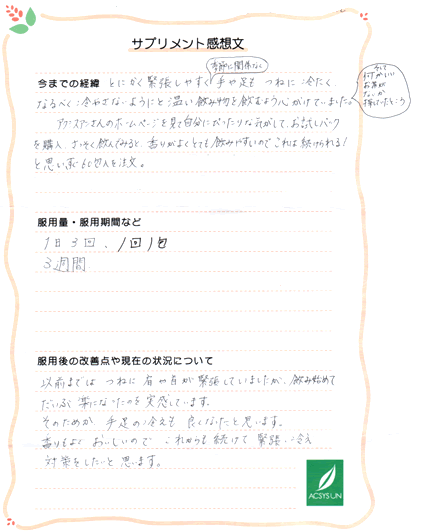 サプリメント感想文
季節に関係なく
今までの経緯 とにかく緊張しやすく手や足も つねに冷たく
なるべく冷やさないようにと温い飲み物を飲むよう心がけていました。
アクシスアンさんのホームページを見て自分にぴったりな気がして、お試しパック
を購入、さっそく飲んでみると、香りがよくとても飲みやすいのでこれは続けられる!
と思い を注文。
服用量・服用期間など
1日3回、1回1包
3週間
服用後の改善点や現在の状況について
以前までは つねに 肩や首が緊張していましたが、飲み始めて
だいぶ楽になったのを実感しています。
そのためか 手足の冷えも 良くなったと思います。
香りもよく おいしいので これからも続けて 緊張、冷え
対策をしたいと思います。
ACSYSUN